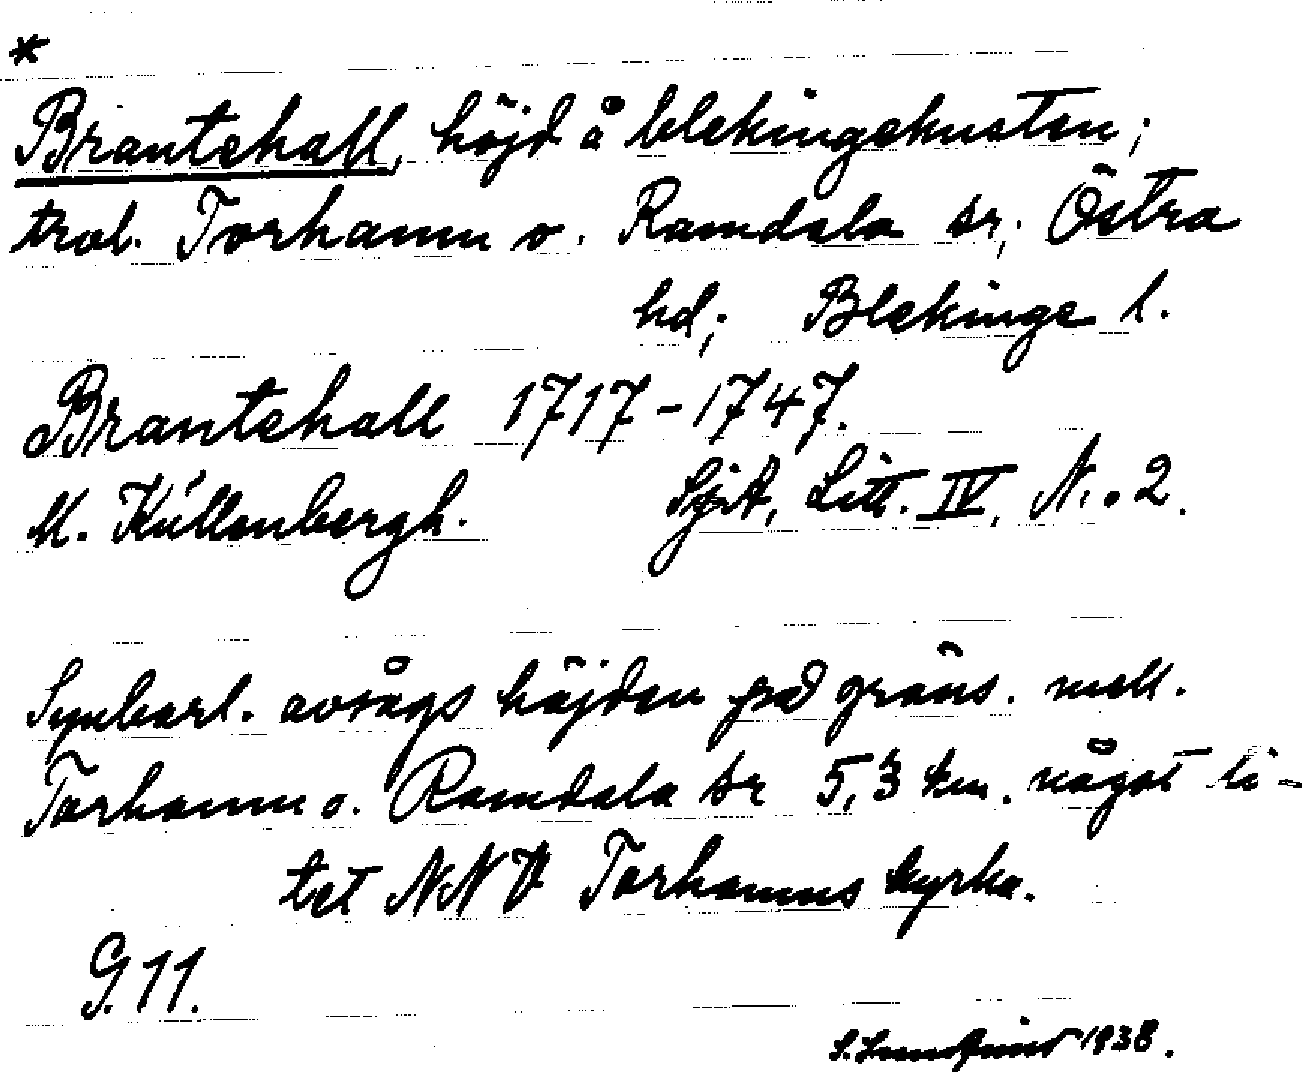 *
Brantehall, höjd å blekingekusten;
trol. Torhamn o. Ramdala sr, Östra
hd; Blekinge l.
Brantehall 1717-1747.
M. Küllenbergh. SjöA, Litt. IV, N. 2.
Synbarl. avsågs höjden på gräns. mell.
Torhamn o. Ramdala sr 5,3 km. något li-
tet NNV Torhamns kyrka.
G. 11.
1938.